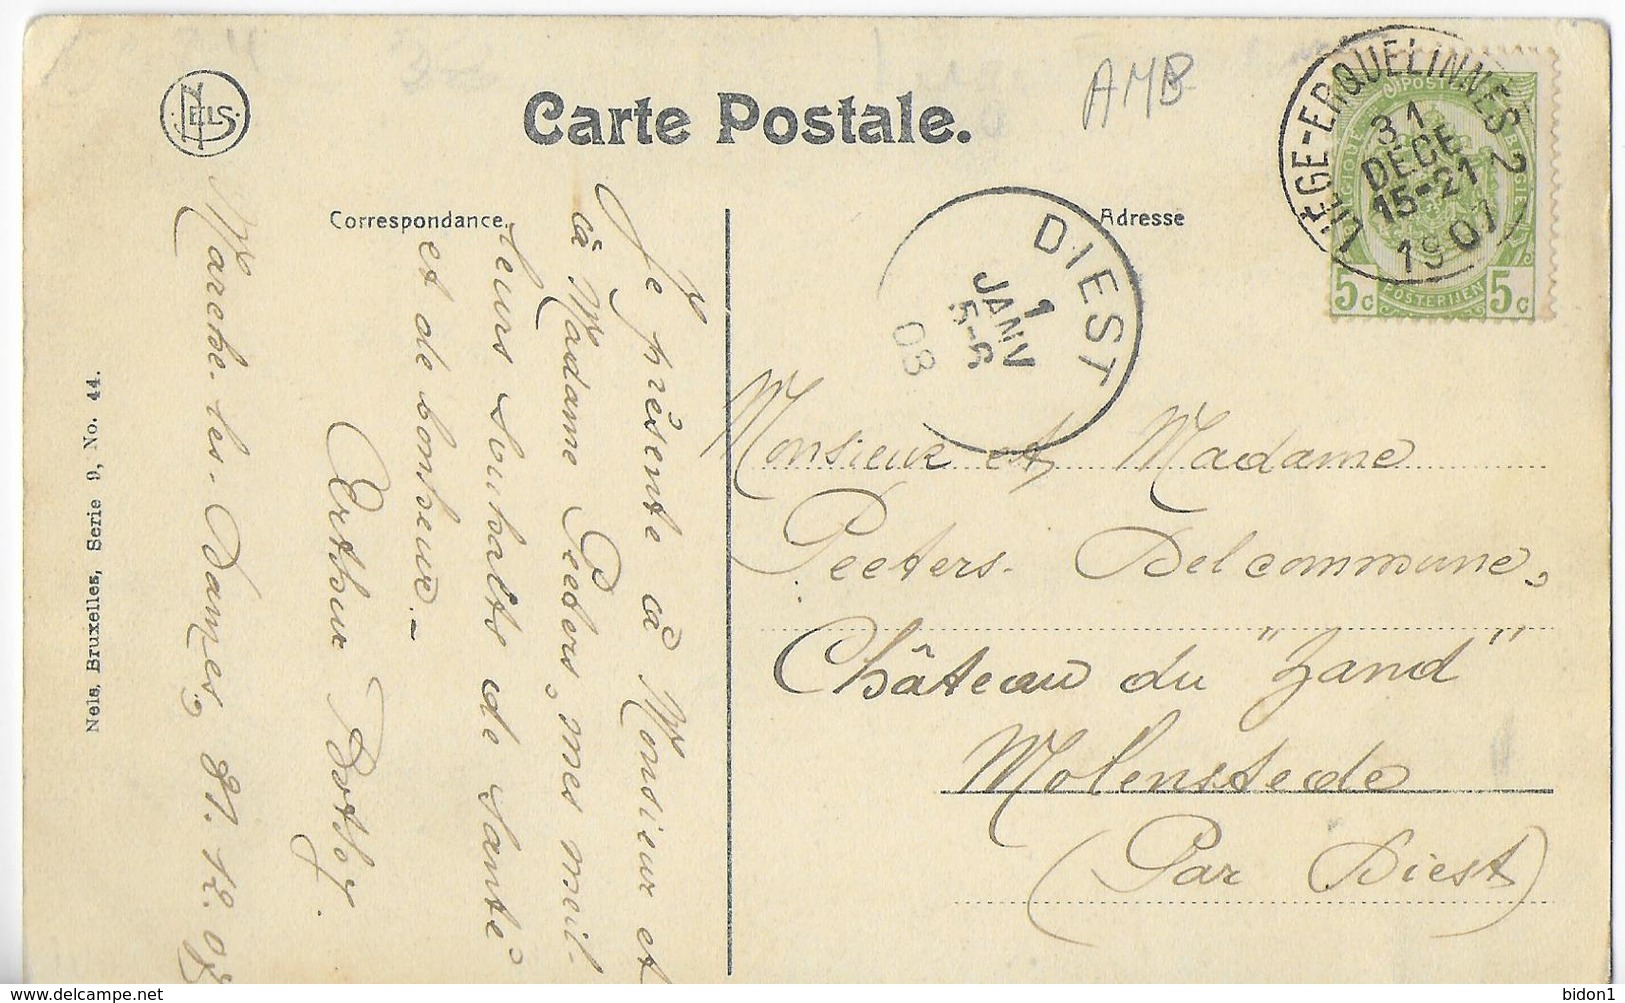 NELS
Carte Postale.
AMB
Correspondance.
Adresse
LIÈGE-ERQUELINNES 2
31
DECE
15-21
1907
POSTES
BELGIQUE
BELGIE
5c
POSTERIJEN
5c
DIEST
1
JANV
5-6
08
Je présente à Monsieur et
à Madame Peeters, mes meil-
leurs souhaits de santé
et de bonheur. -
Arthur
Marche-les-Dames, 31.12.07
Monsieur et Madame
Peeters-Delcommune,
Château du "Zand"
Molenstede
(Par Diest)
Nels, Bruxelles, Serie 9, No. 44.
bidon1
www.delcampe.net